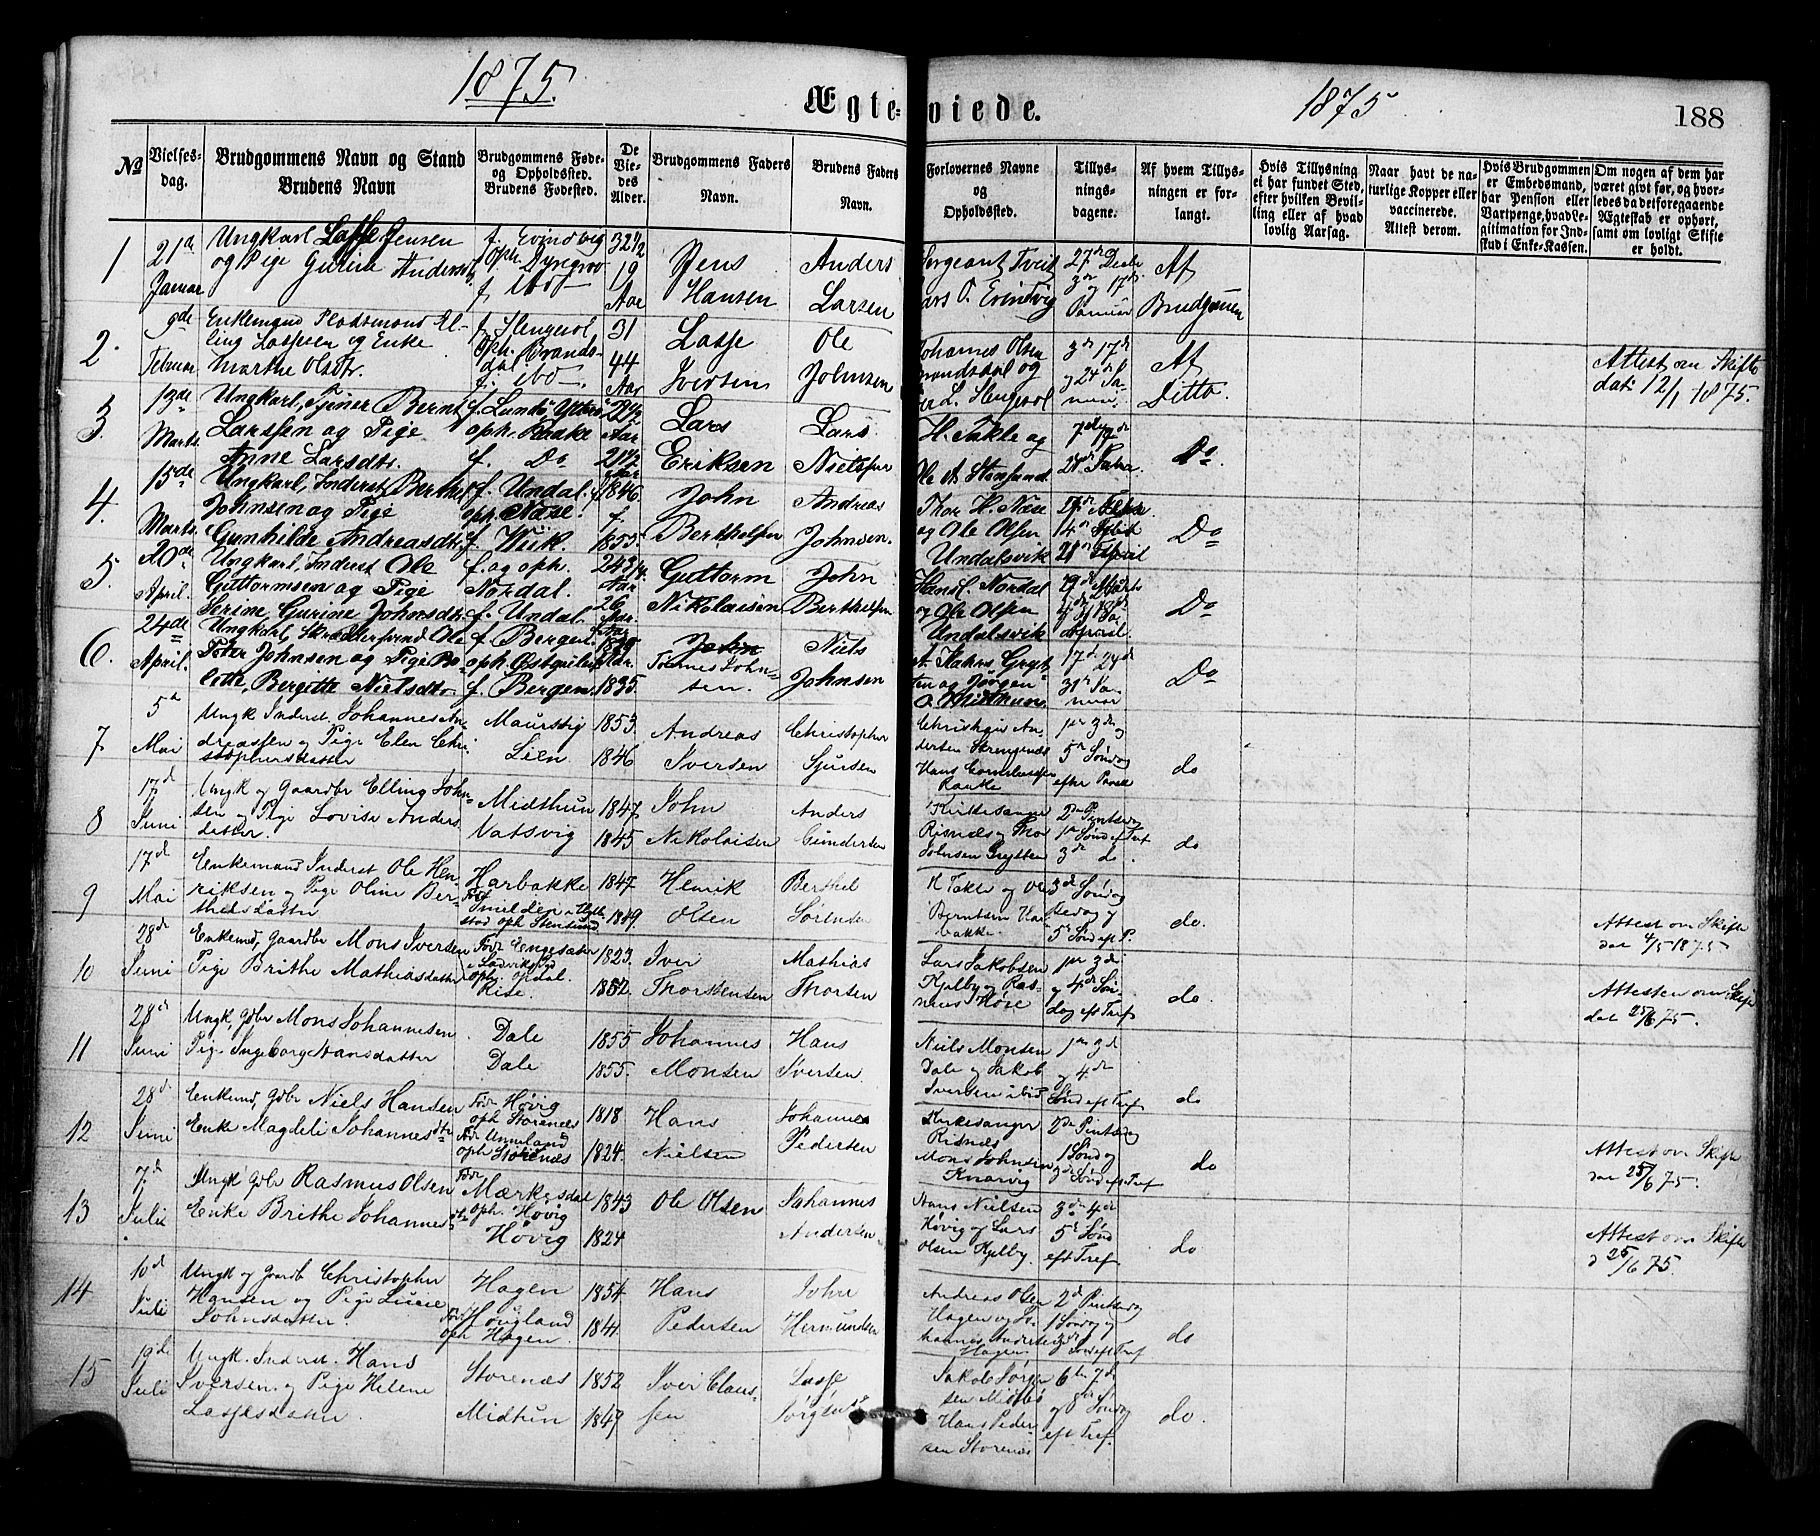 1875.
Ægte-
viede.
1875
188
No
Vielses-
dag.
Brudgommens Navn og Stand
Brudens Navn
Brudgommens Føde-
og Opholdssted.
Brudens Fødested.
De
Vie-
des
Alder.
Brudgommens Faders
Navn.
Brudens Faders
Navn.
Forlovernes Navne
og
Opholdssted.
Tillys-
nings-
dagene.
Af hvem Tillys-
ningen er for-
langt.
Hvis Tillysning
ei har fundet Sted,
efter hvilken Bevil-
ling eller af hvad
lovlig Aarsag.
Naar havt de na-
turlige Kopper eller
vaccinerede.
Attest derom.
Hvis Brudgommen
er Embedsmand,
har Pension eller
Vartpenge, hvad Le-
gitimation for Ind-
skud i Enke-Kassen.
Om nogen af dem har
været givt før, og hvor-
ledes da det foregaaende
Ægteskab er ophørt,
samt om lovligt Skifte
er holdt.
1
21de
Januar
Ungkarl Lasse Jensen
og Pige Gurine Andersdtr
f. Evindvig
Oph. Dyregrov
f. ibd
32 1/2
19
Aar
Jens
Hansen
Anders
Larsen
Sergeant Tveit
Lars O. Evindvig
27de Decbr
3de og 17de
Januar
Af
Brudgommen
2.
9de
Februar
Enkemand Pladsmand El-
ling Lassesen og Enke
Marthe Olsdtr.
f. Slengesol
Oph. Brands-
dal
f. ibd
31
44
Aar
Lasse
Iversen
Ole
Johnsen
Johannes Olsen
Brandsdal og
L. Slengesol
3de 17de
og 24de Ja-
nuar
Af
Ditto.
Attest om Skifte
dat. 12/1 1875.
3.
13de
Marts.
Ungkarl, Tjener Bernt
Larssen og Pige
Anne Larsdtr.
oph. Raake
f. Do
Aar
21 1/2
Aar
Lars
Eriksen
Lars
Nielssen
H. Takle og
Do.
4.
15de
Marts.
Ungkarl, Inderst Berthel
Johnsen og Pige
Gunhilde Andreasdtr.
f. Undal.
oph. Næse.
f. Wiik.
1846.
f.
1853.
John
Berthelsen
Andreas
Johnsen.
Thor H. Næse
og Ole Olsen
Undalsvik
Do
5.
20de
April.
Ungkarl, Inderst Ole
Guttormsen og Pige
Serine Gurine Johnsdtr.
f. og oph.
Nordal.
f. Undal.
24 3/4
Aar
26
Aar
Guttorm
Nikolaisen
John
Berthelsen
Hans L. Nordal
og Ole Olsen
Undalsvik
Do
6.
24de
April.
Ungkarl, Skrædersvend Ole
Peter Johnsen og Pige Bo-
lette, Bergitte Nielsdtr.
f. Bergen
f. Bergen.
1835.
John
Tønnes John-
sen.
Niels
Johnsen
17de 24de
31te Ja-
nuar
Do
7
5d
Mai
Ungk Inderst. Johannes An-
dreassen og Pige Elen Chri-
stophersdatter
Maurstig
Lien
1853.
1846
Andreas
Iversen
Christopher
Sjursen
Hans Corneliussen
Raake
1ste 3de og
5te Søndag
efter Paske
do
8
17d
Juni
Ungk og Gaardbr Elling John-
sen og Pige Lovise Anders
datter.
Midthun
Vatsvig
1847.
1845
John
Nikolaisen
Anders
Gundersen
Kirkesanger
Risnæs og Thor
Johnsen Grytten
2den Pintsedag
1ste Sønd ef Tref
3de do.
do
9
17d
Mai
Enkemand Inderst Ole Hen-
riksen og Pige Oline Ber-
thelsdatter
Harbakke
1847.
1849.
Henrik
Olsen
Berthel
Sørensen
H Takle og Ole
Berntsen Har-
bakke.
3de Søndag
5te Sønd eft P.
do.
Attest om Skifte
dat 4/5 1875
10
28de
Juni
Enkemd, Gaardbr Mons Iversen
Pige Brithe Mathiasdatter
Født Engesæter
i Ladviks Sgd
oph. Opdal.
Rise.
1823.
1852.
Iver
Thorstensen
Mathias
Thorsen
Lars Jakobsen
Kjelby og Ras-
1ste 3de
og 4de Søn
dag eft Tref
do.
Attesten om Skifte
dat 25/6 75.
11
28de
Juni
Ungk, Gdbr Mons Johannesen
Pige Ingeborg Hansdatter
Dale
Dale
1855
1855.
Johannes
Monsen
Hans
Iversen
Niels Monsen
Dale og Jakob
Iversen ibid
1ste 3de
og 4de
Sønd eft Tref
do
12
28de
Juni
Enkemd, Gdbr Niels Hansen
Enke Magdeli Johannesdtr
Født Høvig
oph Storenæs
Født Unneland
oph Storenæs
1818
1824.
Hans
Nielsen
Johannes
Pedersen
Kirkesanger
Risnæs
Mons Johnsen
Knarvig
2den Pintsedag
1 Sønd og
3de Sønd eft Tref
do
Attest om Skifte
dat 25/6 75.
13
7de
Julie
Ungk Gdbr Rasmus Olsen
Enke Brithe Johannesdtr
Født
Mærkesdal
oph Høvig
Høvig
1843
1824
Ole Olsen
Johannes
Andersen
Hans Nielsen
Høvig og Lars
Olsen Kjelby.
3de 4de
5te Sønd
eft Tref
do
Attest om Skifte
d 25/6 75.
14
10d
Juli
Ungk og Gaardb Christopher
Hansen og Pige Lucie
Johnsdatter.
Hagen
Født Hougland
oph Hagen
1854
1841
Hans
Pedersen
John
Hermundsen
Andreas Olsen
Hagen og Jo-
hannes Andersen
Hagen
2d Pintsedag
1 Søndag og
3de Sønd eft Tref
do
15
19de
Juli
Ungk. Inderst. Hans
Iversen og Pige Helene
Lassesdatter.
Storenæs
Midthun
1852
1849
Iver Claus-
sen
Lasse
Jørgensen
Jakob Jørgen-
sen Mjølbø
Hans Peder-
sen Storenæs
6te 7de
og 8de Søndag
eft Tref.
do.